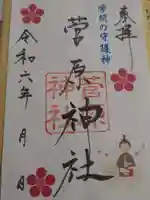 奉拝
学問の守護神
菅原神社
令和六年 月 日